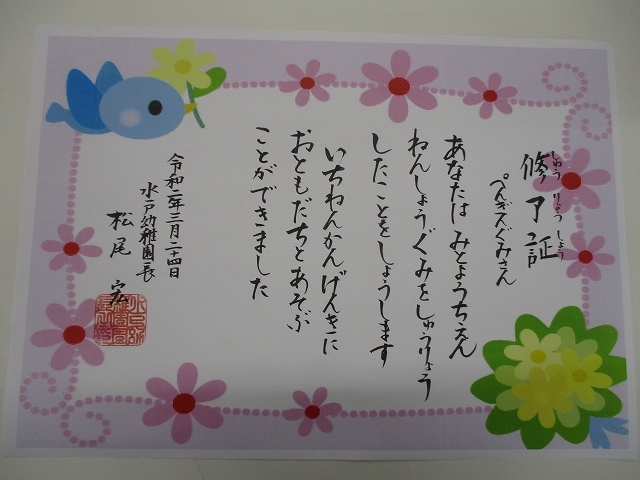 修了証
しゅうりょうしょう
ぺんぎんぐみさん
あなたは みとようちえん
ねんしょうぐみをしゅうりょう
したことをしょうします
いちねんかんげんきに
おともだちとあそぶ
ことができました
令和二年三月二十四日
水戸幼稚園長
松尾 宏